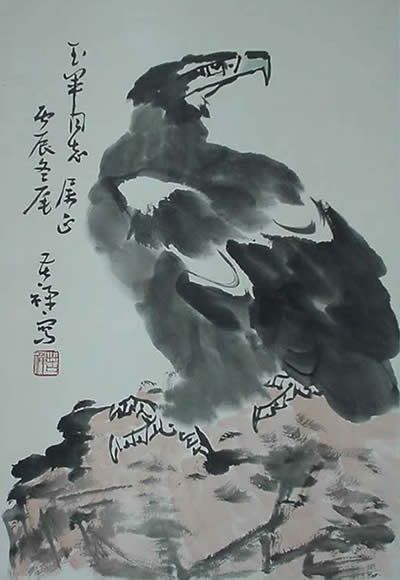 玉军同志
居正
丙辰冬尾
苦禅写